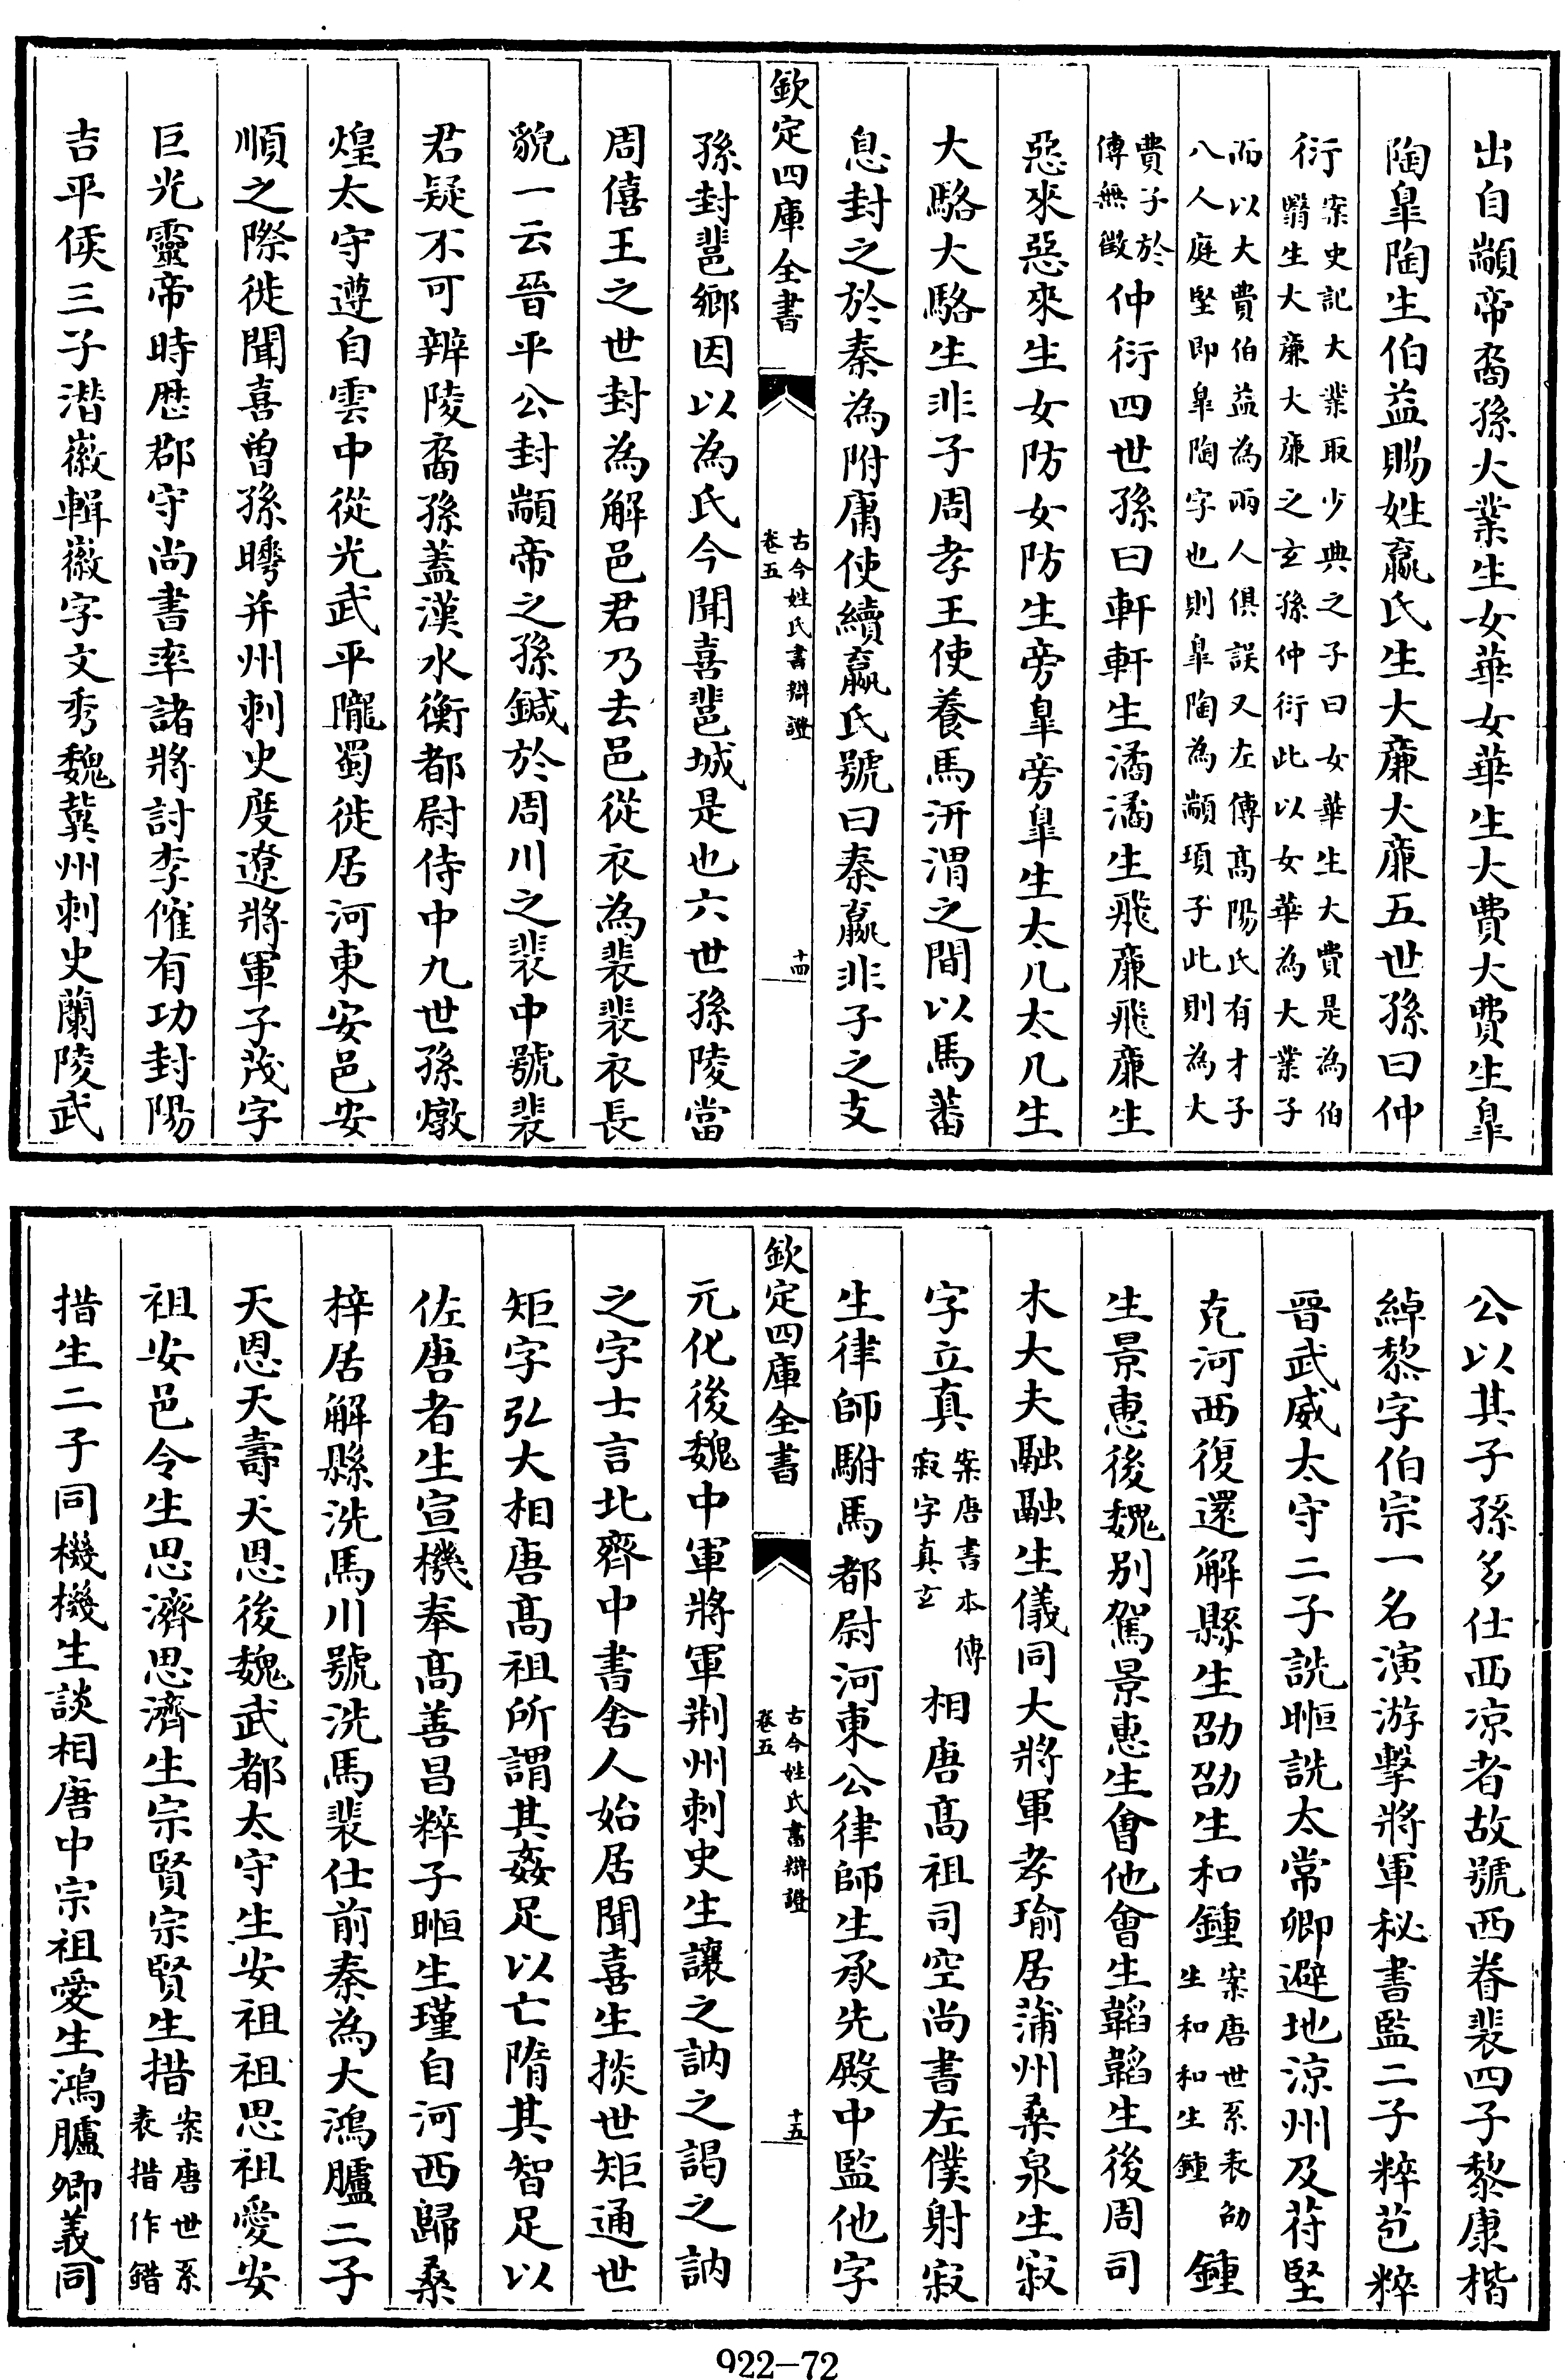 出自顓帝裔孫大業生女華女華生大費大費生臯
陶臯陶生伯益賜姓嬴氏生大廉大廉五世孫曰仲
衍案史記大業取少典之子曰女華生大費是為伯
翳生大廉大廉之玄孫仲衍此以女華為大業子
而以大費伯益為兩人俱誤又左傳髙陽氏有才子
八人庭堅即臯陶字也則臯陶為顓頊子此則為大
費子於
傳無徴仲衍四世孫曰軒軒生潏潏生飛廉飛廉生
惡來惡來生女防女防生旁臯旁臯生太几太几生
大駱大駱生非子周孝王使養馬汧渭之間以馬蕃
息封之於秦為附庸使續嬴氏號曰秦嬴非子之支
欽定四庫全書
古今姓氏書辯證
卷五
十四
孫封𨛬鄉因以為氏今聞喜𨛬城是也六世孫陵當
周僖王之世封為解邑君乃去邑從衣為裴裴衣長
貌一云晉平公封顓帝之孫鍼於周川之裴中號裴
君疑不可辨陵裔孫盖漢水衡都尉侍中九世孫燉
煌太守遵自雲中從光武平隴蜀徙居河東安邑安
順之際徙聞喜曾孫曄并州刺史度遼將軍子茂字
巨光靈帝時歴郡守尚書率諸將討李傕有功封陽
吉平侯三子潛徽輯徽字文秀魏冀州刺史蘭陵武
公以其子孫多仕西凉者故號西眷裴四子黎康楷
綽黎字伯宗一名演游擊將軍秘書監二子粹苞粹
晉武威太守二子詵暅詵太常卿避地凉州及苻堅
克河西復還解縣生劭劭生和鍾案唐世系表劭
生和和生鍾鍾
生景惠後魏别駕景惠生會他會生韜韜生後周司
木大夫融融生儀同大將軍孝瑜居蒲州桑泉生寂
字立真案唐書本傳
寂字真玄相唐髙祖司空尚書左僕射寂
生律師駙馬都尉河東公律師生承先殿中監他字
欽定四庫全書
古今姓氏書辯證
卷五
十五
元化後魏中軍將軍荆州刺史生讓之訥之謁之訥
之字士言北齊中書舍人始居聞喜生掞世矩通世
矩字弘大相唐髙祖所謂其姦足以亡隋其智足以
佐唐者生宣機奉髙善昌粹子暅生瑾自河西歸桑
梓居解縣洗馬川號洗馬裴仕前秦為大鴻臚二子
天恩天壽天恩後魏武都太守生安祖祖思祖愛安
祖安邑令生思濟思濟生宗賢宗賢生措案唐世系
表措作錯
措生二子同機機生談相唐中宗祖愛生鴻臚卿義同
922-72